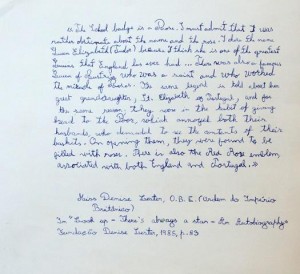 "The School badge is a Rose. I must admit that I was
rather obstinate about the name and the rose. I chose the name
Queen Elizabeth (Tudor) because I think she is one of the greatest
Queens that England has ever had... There was also a famous
Queen of Portugal who was a saint and who worked
the miracle of Roses. The same legend is told about her
great grandmother, St. Elizabeth of Portugal, and for
the same reason; they were in the habit of giving
bread to the Poor, which annoyed both their
husbands, who demanded to see the contents of their
baskets. On opening them, they were found to be
filled with roses. There is also the Red Rose emblem
associated with both England and Portugal."
Miss Denise Lester, O.B.E. (Ordem do Império
Britânico)
In "Look up - There's always a star - An Autobiography"
Fundação Denise Lester, 1985, p.83